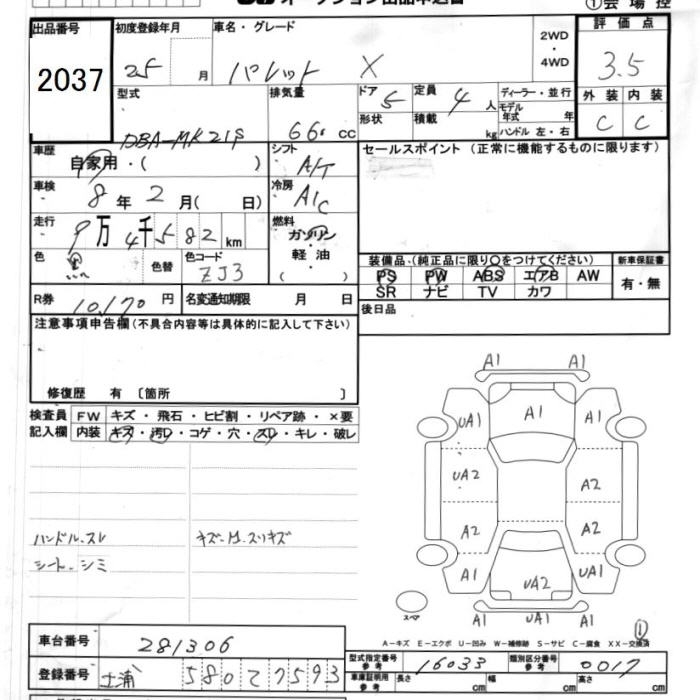 オークション出品申込書 ①会場控
出品番号 2037
初度登録年月 25 月
車名・グレード パレット X
2WD・4WD
評価点 3.5
外装 C 内装 C
型式 DBA-MK21S
排気量 660 cc
ドア 5 定員 4 人
形状 積載 kg
ディーラー・並行
モデル年式 年
ハンドル 左・右
車歴 自家用・( )
シフト A/T
セールスポイント(正常に機能するものに限ります)
車検 8 年 2 月( 日)
冷房 A/C
走行 9万4千582 km
燃料 ガソリン・軽油・( )
色 黒 色替 色コード ZJ3
装備品・(純正品に限り○をつけてください)
PS PW ABS エアB AW
SR ナビ TV カワ
新車保証書 有・無
R券 10,170 円 名変通知期限 月 日
後日品
注意事項申告欄(不具合内容等は具体的に記入して下さい)
修復歴 有 〔箇所 〕
検査員記入欄 FW キズ・飛石・ヒビ割・リペア跡・×要
内装 キズ・汚レ・コゲ・穴・スレ・キレ・破レ
ハンドル.スレ
シート.シミ
A1 A1
UA1 A1 A1
UA2 A2
A2 A2
A1 UA2 UA1
A1 UA1 A1
スペア
①
A-キズ E-エクボ U-凹み W-補修跡 S-サビ C-腐食 XX-交換済
車台番号 281306
登録番号 土浦 580 て 7593
型式指定番号 参考 16033 類別区分番号 参考 0017
車庫証明用 参考 長さ cm 幅 cm 高さ cm